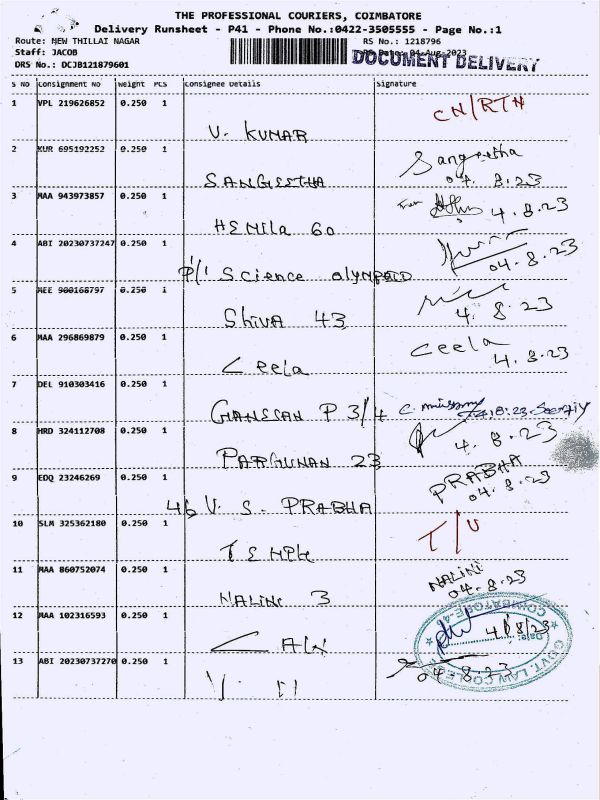 THE PROFESSIONAL COURIERS, COIMBATORE
Delivery Runsheet - P41 - Phone No.:0422-3505555 - Page No.:1
Route: NEW THILLAI NAGAR RS No.: 1218796
Staff: JACOB RS Date: 04-Aug-2023
DOCUMENT DELIVERY
DRS No.: DCJB121879601
S NO Consignment No Weight PCS Consignee Details Signature
1 VPL 219626852 0.250 1 CN/RTN
V. KUMAR
2 KUR 695192252 0.250 1 Sangeetha
SANGEETHA 04.8.23
3 MAA 943973857 0.250 1 4.8.23
HEMila 60
4 ABI 20230737247 0.250 1
P/1 Science olympoid 04.8.23
5 MEE 900168797 0.250 1
Shiva 43 4.8.23
6 MAA 296869879 0.250 1 Ceela
Ceela 4.8.23
7 DEL 910303416 0.250 1
GANESAN P 3/4 4.8.23
8 HRD 324112708 0.250 1 4.8.23
PARGUNAN 23
9 EDQ 23246269 0.250 1 PRABHA
46 V. S. PRABHA 04.8.23
10 SLM 325362180 0.250 1 T/U
11 MAA 860752074 0.250 1 NALINI
NALINI 3 04.8.23
12 MAA 102316593 0.250 1 COIMBATORE-4
Date: 4/8/23
GOVT. LAW COLLEGE
13 ABI 20230737270 0.250 1 04.8.23